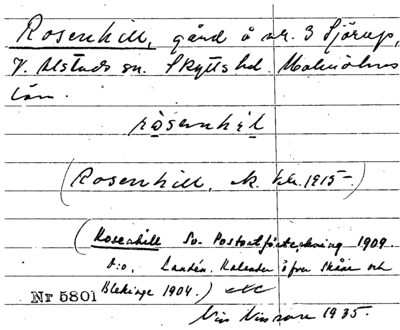 Rosenhill, gård å nr. 3 Sjörup,
V. Alstads sn. Skytts hd. Malmöhus
län.
rosenhil
(Rosenhill, ek. kr. 1915-.)
(Rosenhill Sv. Postortförteckning 1909.
D:o, Landén, Kalender öfver Skåne och
Nr 5801 Blekinge 1904.) etc
1935.